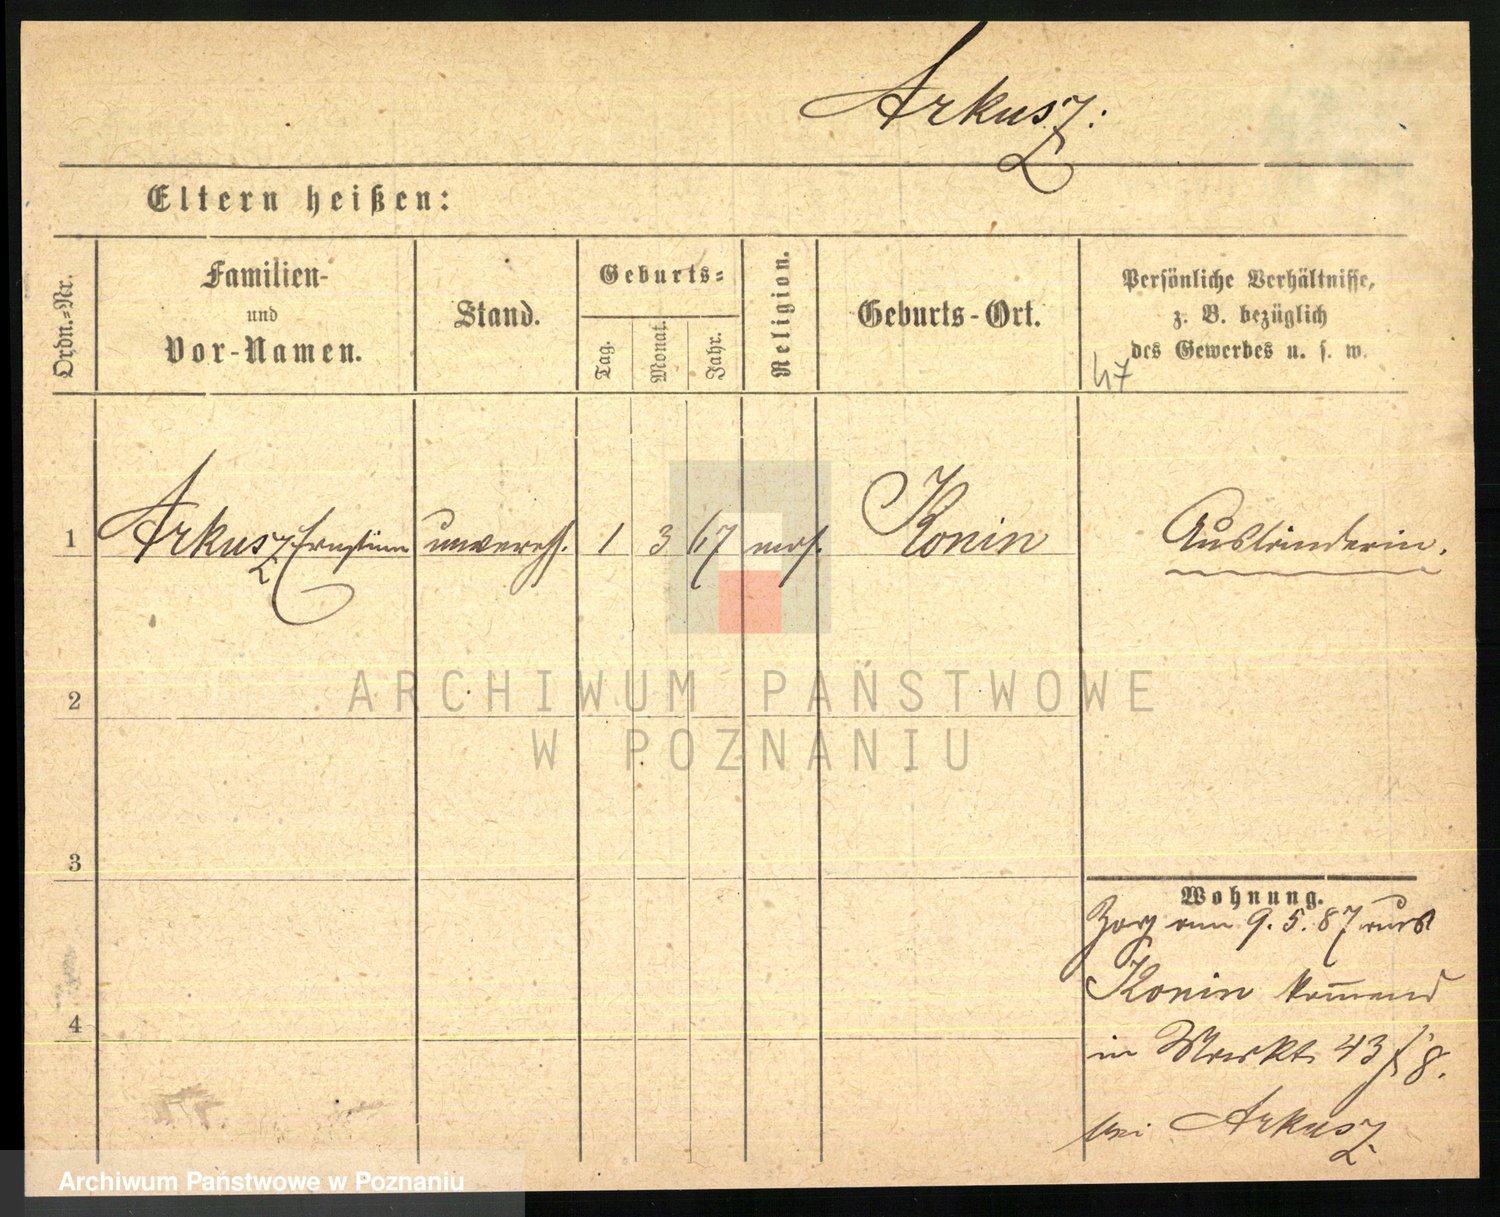 Arkusz:
Eltern heißen:
Ordn.-Nr.
Familien-
und
Vor-Namen.
Stand.
Geburts-
Tag.
Monat.
Jahr.
Religion.
Geburts-Ort.
Persönliche Verhältnisse,
z. B. bezüglich
des Gewerbes u. s. w.
47
1 Arkusz Ernestine unvereh. 1 3 67 mos. Konin Ausländerin.
ARCHIWUM PAŃSTWOWE
2
W POZNANIU
3
Wohnung.
Zog am 9. 5. 87 aus
Konin kom̄end
4
in Markt 43
bei Arkusz
Archiwum Państwowe w Poznaniu